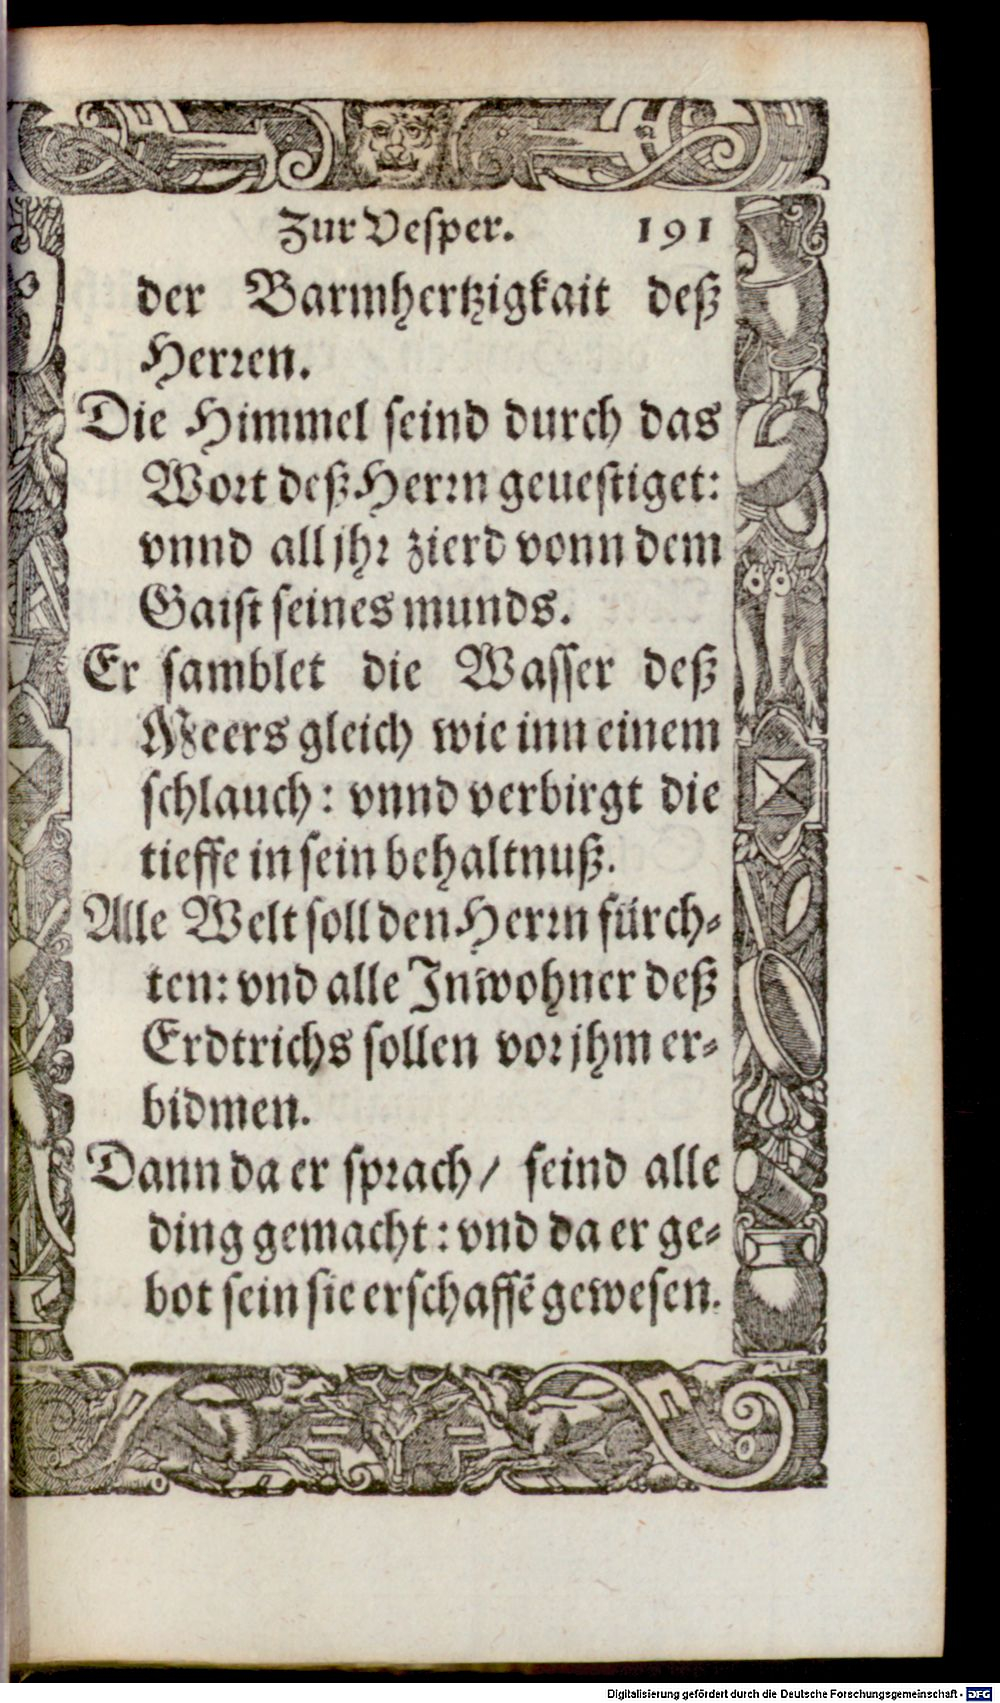 Zur Vesper. 191
der Barmhertzigkait deß
Herren.
Die Himmel seind durch das
Wort deß Herrn geuestiget:
vnnd all jhr zierd vonn dem
Gaist seines munds.
Er samblet die Wasser deß
Meers gleich wie inn einem
schlauch: vnnd verbirgt die
tieffe in sein behaltnuß.
Alle Welt soll den Herrn fürch⸗
ten: vnd alle Inwohner deß
Erdtrichs sollen vor jhm er⸗
bidmen.
Dann da er sprach / seind alle
ding gemacht: vnd da er ge⸗
bot sein sie erschaffē gewesen.
Digitalisierung gefördert durch die Deutsche Forschungsgemeinschaft - DFG